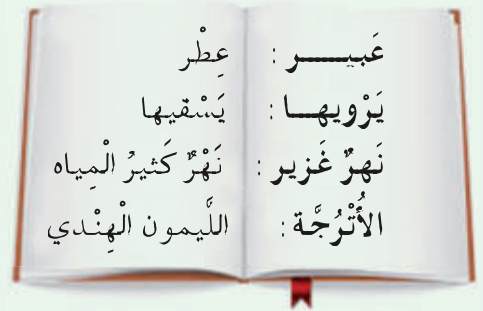 عَبيـــــر : عِطْر
يَرْويهـــا : يَسْقيها
نَهرٌ غَزير : نَهْرٌ كَثيرُ الْمِياه
الأُتْرُجَّة : اللَّيمون الْهِنْدي